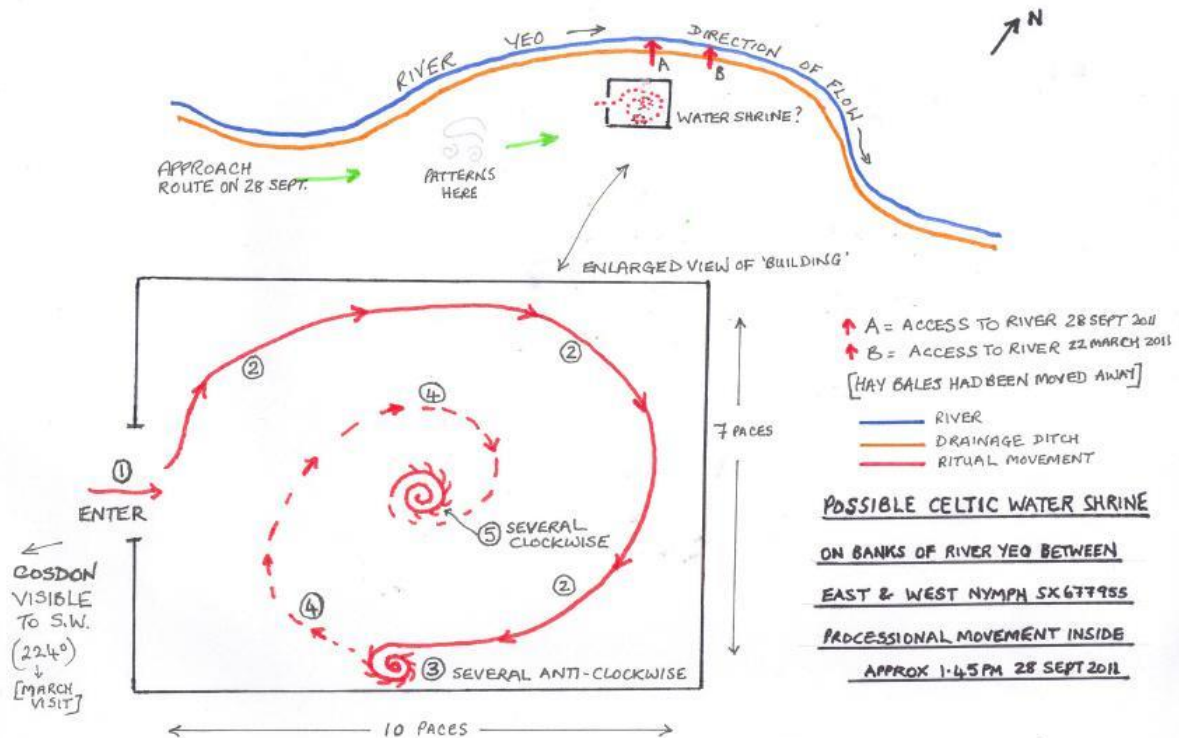 N
RIVER YEO → DIRECTION OF FLOW →
A
B
WATER SHRINE?
APPROACH
ROUTE ON 28 SEPT.
PATTERNS
HERE
ENLARGED VIEW OF 'BUILDING'
A = ACCESS TO RIVER 28 SEPT 2011
B = ACCESS TO RIVER 22 MARCH 2011
[HAY BALES HAD BEEN MOVED AWAY]
RIVER
DRAINAGE DITCH
RITUAL MOVEMENT
POSSIBLE CELTIC WATER SHRINE
ON BANKS OF RIVER YEO BETWEEN
EAST & WEST NYMPH SX677955
PROCESSIONAL MOVEMENT INSIDE
APPROX 1·45PM 28 SEPT 2011
②
②
④
7 PACES
①
ENTER
⑤ SEVERAL
CLOCKWISE
②
④
③ SEVERAL ANTI-CLOCKWISE
COSDON
VISIBLE
TO S.W.
(224°)
[MARCH
VISIT]
10 PACES